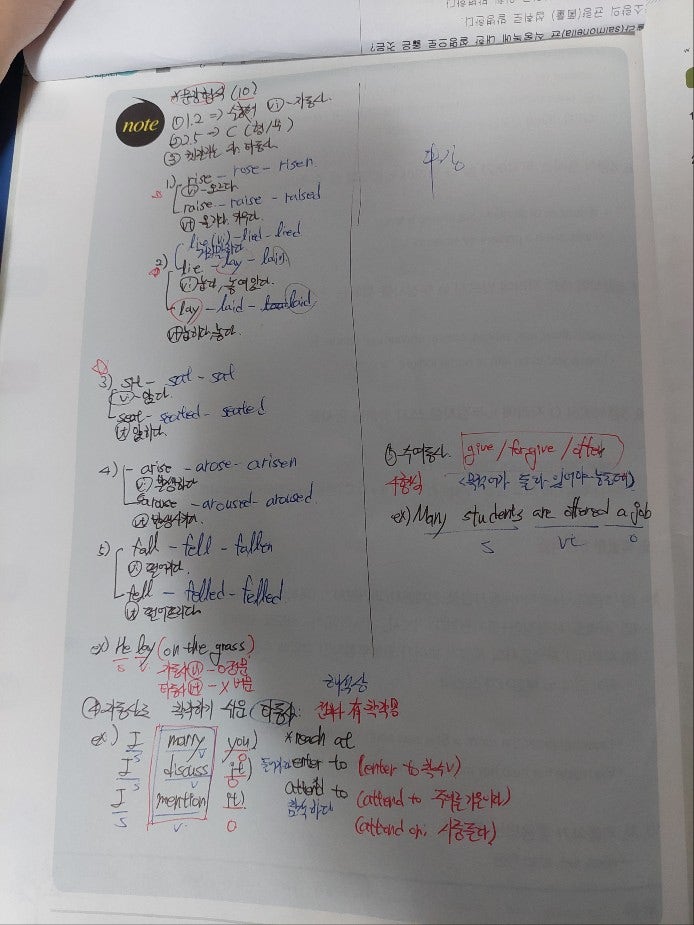 note
*문장형식 (10)
① 1.2 => 수동태 vi - 자동사.
② 2.5 => C (형/부)
③ 헷갈리는 자. 타동사
1) rise - rose - risen.
vi - 오르다.
raise - raise - raised
vt 올리다. 키우다.
lie(vi) - lied - lied
거짓말하다
2) lie - lay - lain
vi 눕다, 놓여있다.
lay - laid - laid.
vt 눕히다, 놓다.
3) sit - sat - sat
vi - 앉다.
seat - seated - seated
vt 앉히다.
4) - arise - arose - arisen
vi 발생하다
arouse - aroused - aroused
vt 발생시키다.
5) fall - fell - fallen
vi 떨어지다.
fell - felled - felled.
vt 떨어트리다.
ex) He lay (on the grass)
S V
자동사 vi - O 전문
타동사 vt - X
해석상
④ 자동사로 착각하기 쉬운 (타동사: 전치사 有 착각용
ex) I marry you) *reach at
S V O
I discuss it) 들어가다 enter to (enter to 착수)
S V O
I mention it) attend to (attend to 주의를 기울이다)
S V O 참석하다 (attend on, 시중들다)
⑤ 수여동사. give / forgive / offer
4형식 (목적어가 둘 다 있어야
ex) Many students are offered a job
S Vt O